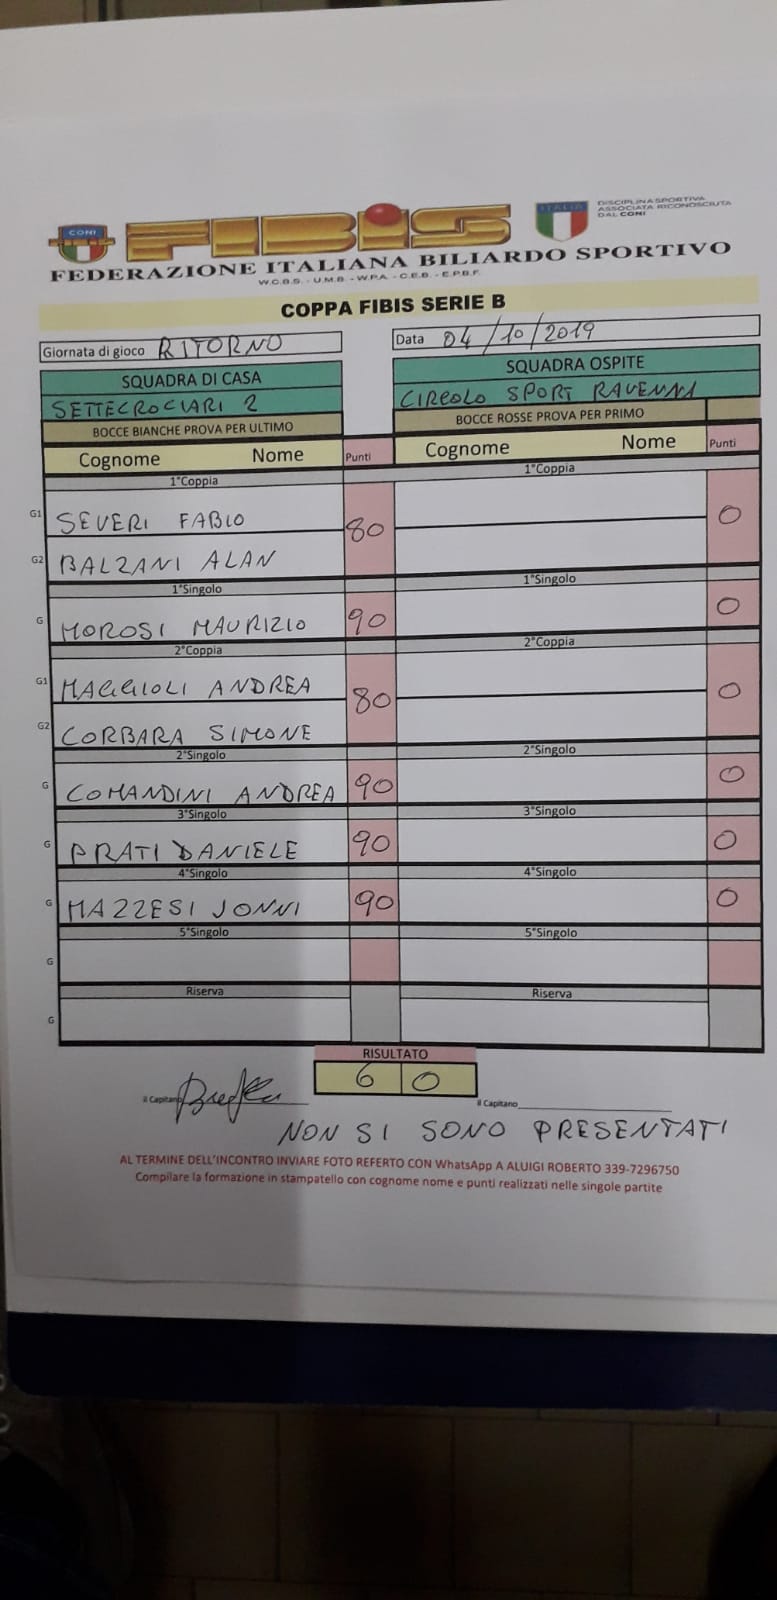 CONI
FIBIS
ITALIA
DISCIPLINA SPORTIVA
ASSOCIATA RICONOSCIUTA
DAL CONI
FEDERAZIONE ITALIANA BILIARDO SPORTIVO
W.C.B.S. - U.M.B. - W.P.A. - C.E.B. - E.P.B.F.
COPPA FIBIS SERIE B
Giornata di gioco RITORNO Data 04/10/2019
SQUADRA DI CASA SQUADRA OSPITE
SETTECROCIARI 2 CIRCOLO SPORT RAVENNA
BOCCE BIANCHE PROVA PER ULTIMO BOCCE ROSSE PROVA PER PRIMO
Cognome Nome Punti Cognome Nome Punti
1°Coppia 1°Coppia
G1 SEVERI FABIO 80 0
G2 BALZANI ALAN
1°Singolo 1°Singolo
G MOROSI MAURIZIO 90 0
2°Coppia 2°Coppia
G1 MAGGIOLI ANDREA 80 0
G2 CORBARA SIMONE
2°Singolo 2°Singolo
G COMANDINI ANDREA 90 0
3°Singolo 3°Singolo
G PRATI DANIELE 90 0
4°Singolo 4°Singolo
G MAZZESI JONNI 90 0
5°Singolo 5°Singolo
G
Riserva Riserva
G
RISULTATO
6 0
il Capitano il Capitano
NON SI SONO PRESENTATI
AL TERMINE DELL'INCONTRO INVIARE FOTO REFERTO CON WhatsApp A ALUIGI ROBERTO 339-7296750
Compilare la formazione in stampatello con cognome nome e punti realizzati nelle singole partite